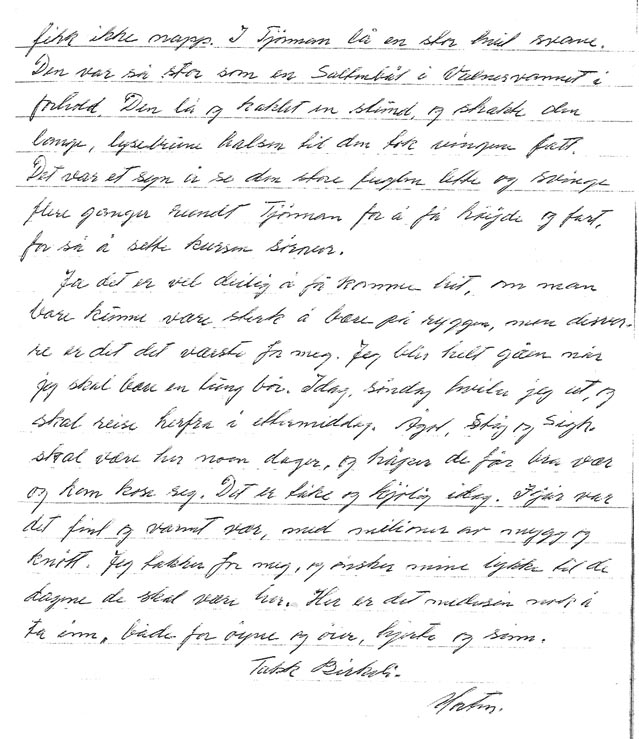 fikk ikke napp. I Tjönnan lå en stor hvit svane.
Den var så stor som en Saltenbåt i Vatnervannet i
forhold. Den lå og kaklet en stund, og strakte den
lange, lysebrune halsen til den tok vingene fatt.
Det var et syn å se den store fuglen lette og svinge
flere ganger rundt Tjönnan for å få höyde og fart,
for så å sette kursen sörover.
Ja det er vel deilig å få komme hit, om man
bare kunne være sterk å bære på ryggen, men desver-
re er det det værste for meg. Jeg blir helt gåen når
jeg skal bære en tung bör. Idag, söndag hviler jeg ut, og
skal reise herfra i ettermiddag. Ågot, Stig og
skal være her noen dager, og håper de får bra vær
og kan kose seg. Det er tåke og kjölig idag. Igår var
det fint og varmt vær, med milioner av mygg og
knött. Jeg takker for meg, og önsker mine lykke til de
dagene de skal være her. Her er det nok å
ta inn, både for öyne og örer, hjerte og sinn.
Takk